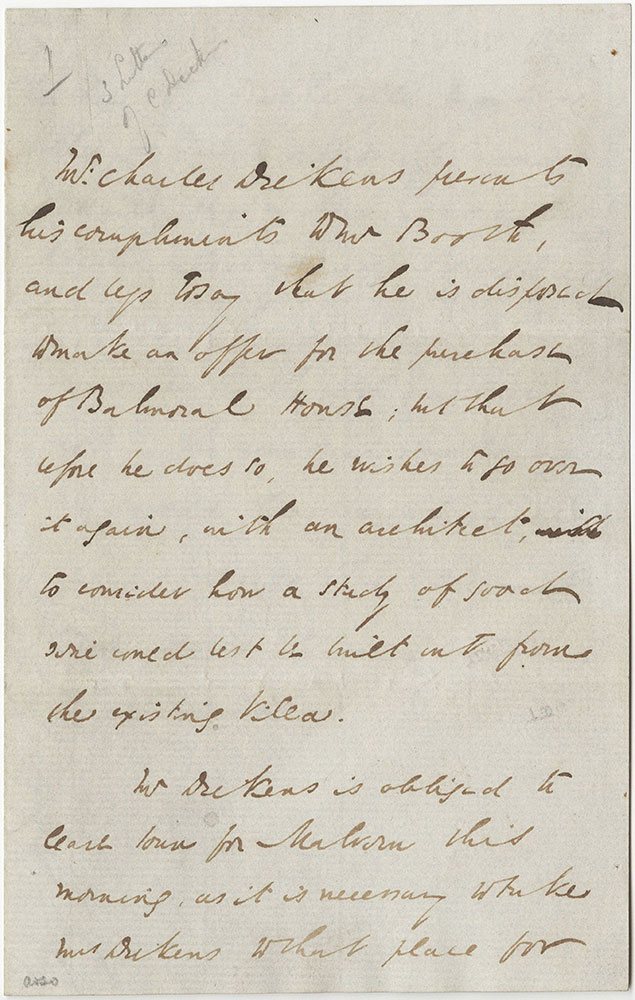 1
3 Letters
of C Dickens
Mr. Charles Dickens presents
his compliments to Mr Booth,
and begs to say that he is disposed
to make an offer for the purchase
of Balmoral House; but that
before he does so, he wishes to go over
it again, with an architect,
to consider how a study of good
size could best be built out from
the existing Villa.
Mr Dickens is obliged to
leave town for Malvern this
morning, as it is necessary to take
Mrs Dickens to that place for